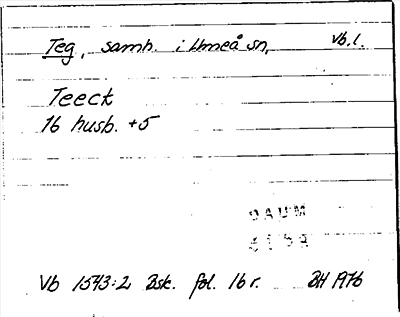 Teg, samh. i Umeå sn, Vb.l.
Teeck
16 husb. +5
DAUM
Vb 1543:2 Bsk. fol. 16 r. BH 1976